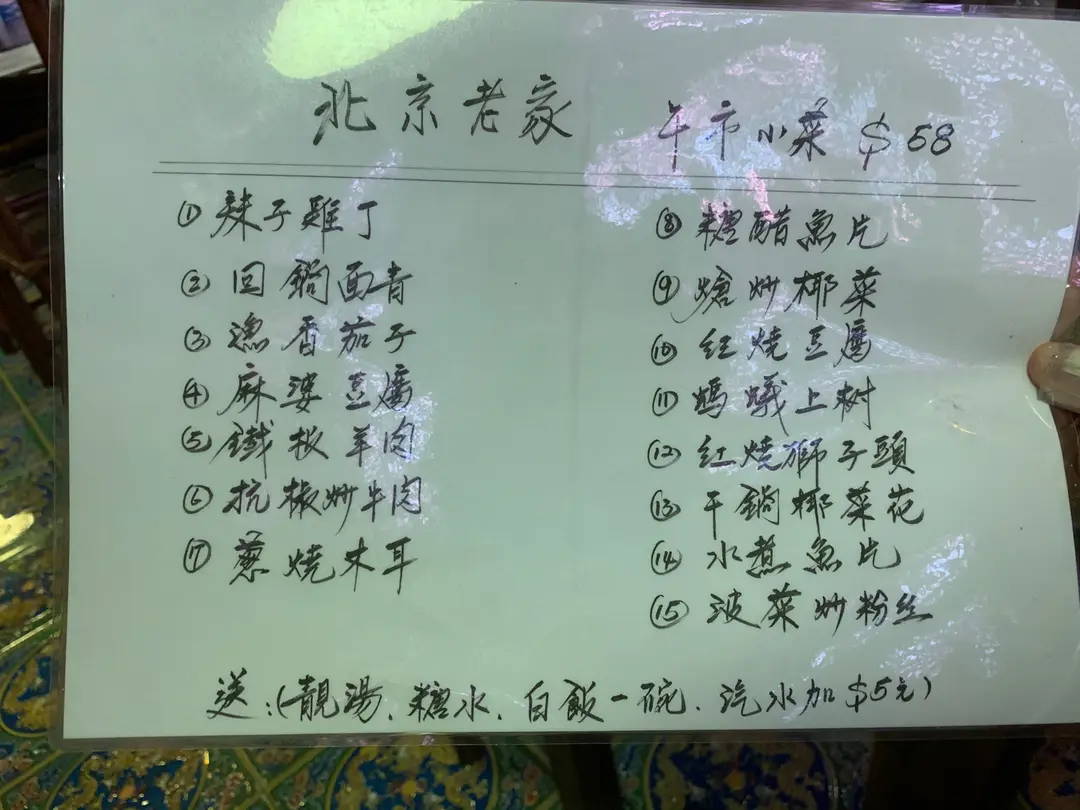 北京老家 午市小菜 $58
① 辣子雞丁
② 回鍋面青
③ 漁香茄子
④ 麻婆豆腐
⑤ 鐵板羊肉
⑥ 抗椒炒牛肉
⑦ 蔥燒木耳
⑧ 糖醋魚片
⑨ 熗炒椰菜
⑩ 紅燒豆腐
⑪ 螞蟻上树
⑫ 紅燒獅子頭
⑬ 干鍋椰菜花
⑭ 水煮魚片
⑮ 波菜炒粉丝
送:(靚湯、糖水、白飯一碗、汽水加$5元)